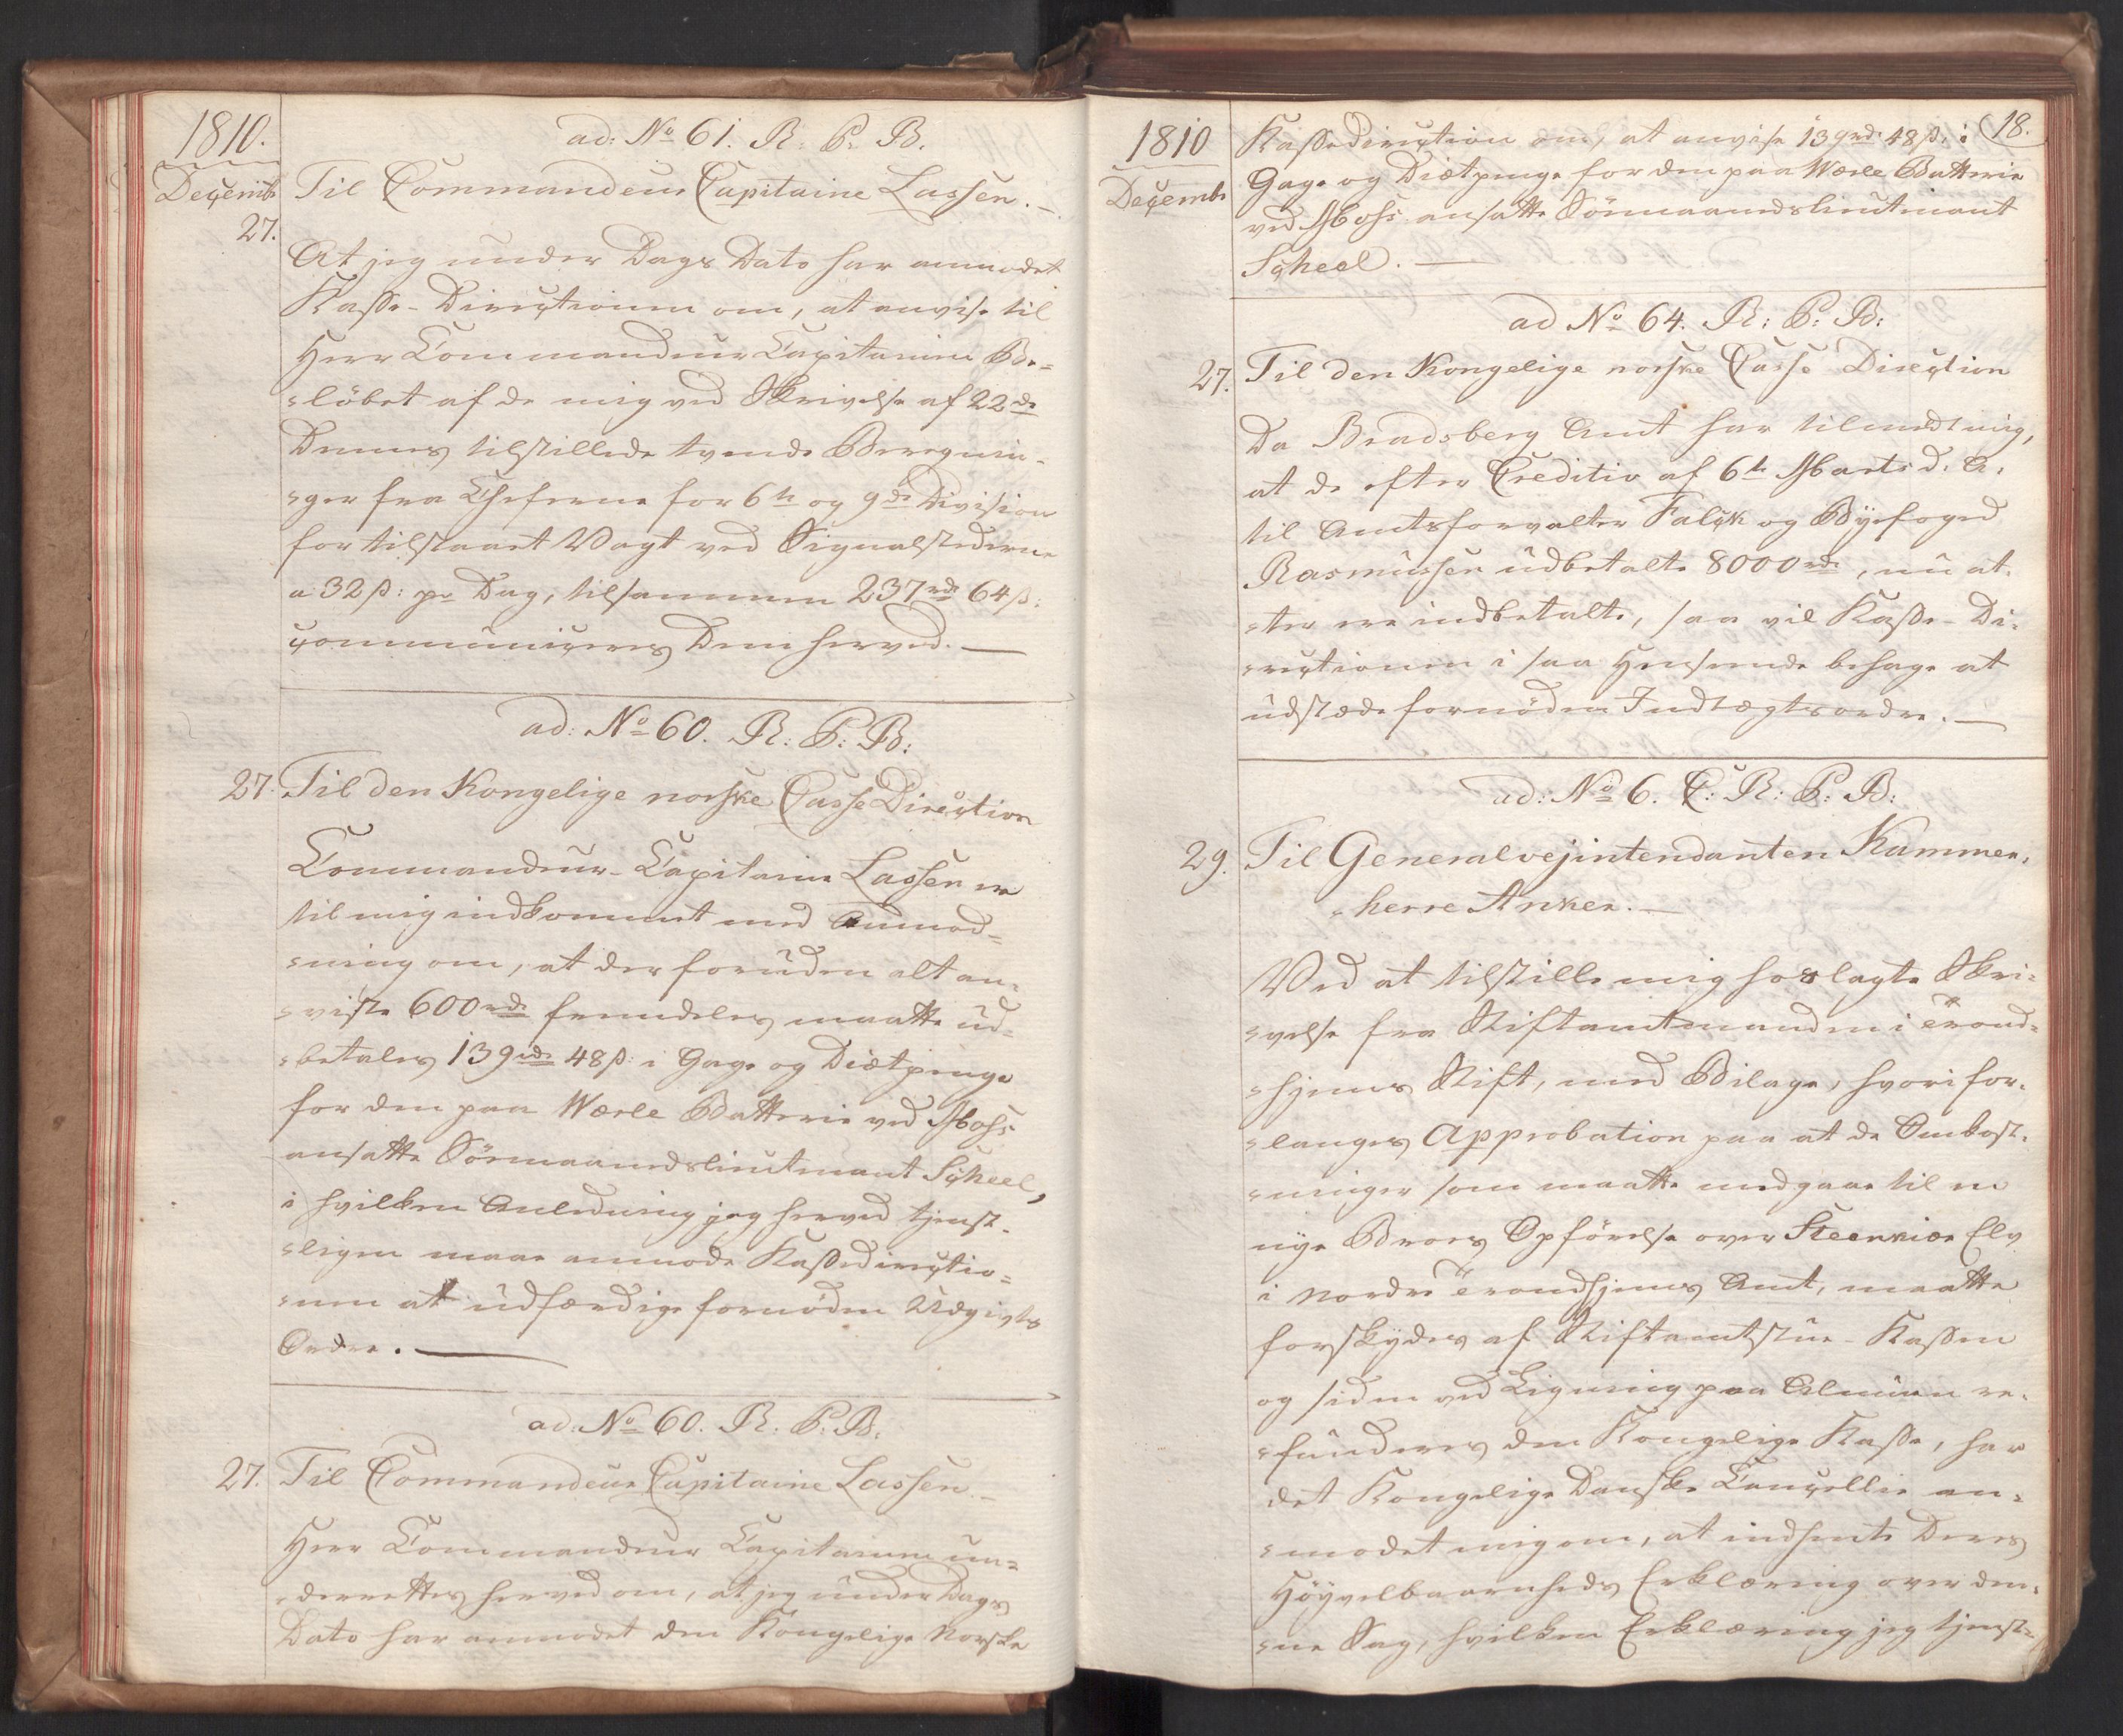 1810.
Decembr
ad: No 61. R: P: B.
27.
Til Commandeur Capitaine Lassen. -
At jeg under Dags Dato har anmodet
Kasse-Directionen om, at anvise til
Herr Commandeur Capitainen Be=
=löbet af de mig ved Skrivelse af 22de
Dennes tilstillede tvende Beregnin-
=ger fra Cheferne for 6te og 9de Division
for tilstaaet Vagt ved Signalstederne
a 32 ß: pr Dag, tilsammen 237rd 64 ß:
communiceres Dem herved. —
ad: No 60. R: P: B:
27. Til den Kongelige norske Casse Direction
Commandeur-Capitaine Lassen er
til mig indkommet med Anmod=
=ning om, at der foruden alt an-
=viste 600rd fremdeles maatte ud=
=betales 139rd 48 ß: i Gage og Diætpenge
for den paa Wærle Batterie ved Moss
ansatte Sönmaanedslieutenant Scheel,
i hvilken Anledning jeg herved tjenst-
=ligen maae anmode Kassedirectio=
=nen at udfærdige fornøden Udgivts
Ordre. —
ad: No 60. R: P: B:
27. Til Commandeur Capitaine Lassen. -
Herr Commandeur Capitainen un=
=derrettes herved om, at jeg under Dags
Dato har anmodet den Kongelige Norske
1810
Decembr
18.
Kassedirection om, at anvise 139rd 48 ß: i
Gage og Diætpenge for den paa Wærle Batterie
ved Moss ansatte Sönmaanedslieutenant
Scheel. —
ad No 64. R: P: B:
27. Til den Kongelige norske Casse Direction
Da Bradsberg Amt har tilmeldt mig,
at de efter Creditiv af 6te Marts d. A.
til Amtsforvalter Falck og Byefoged
Rasmussen udbetalte 8000rd, nu at-
=ter ere indbetalte, saa vil Kasse-Di-
=rectionen i saa Henseende behage at
udstæde fornöden Indtægtsordre. —
ad: No 6. C: R: P: B:
29. Til Generalvejintendanten Kammer-
=herre Anker. —
Ved at tilstille mig hoslagte Skri-
=velse fra Stiftamtmanden i Trond-
=hjems Stift, med Bilage, hvori for-
=langes Approbation paa at de Omkost-
=ninger som maatte medgaae til en
nye Broes Opförelse over Steenkiær Elv
i Nordre Trondhjems Amt, maatte
forskydes af Stiftamtstue-Kassen
og siden ved Ligning paa Almuen re-
=funderes den Kongelige Kasse, har
det Kongelige Danske Cancellie an-
=modet mig om, at indhente Deres
Höyvelbaarenheds Erklæring over den-
=ne Sag, hvilken Erklæring jeg tjenst=